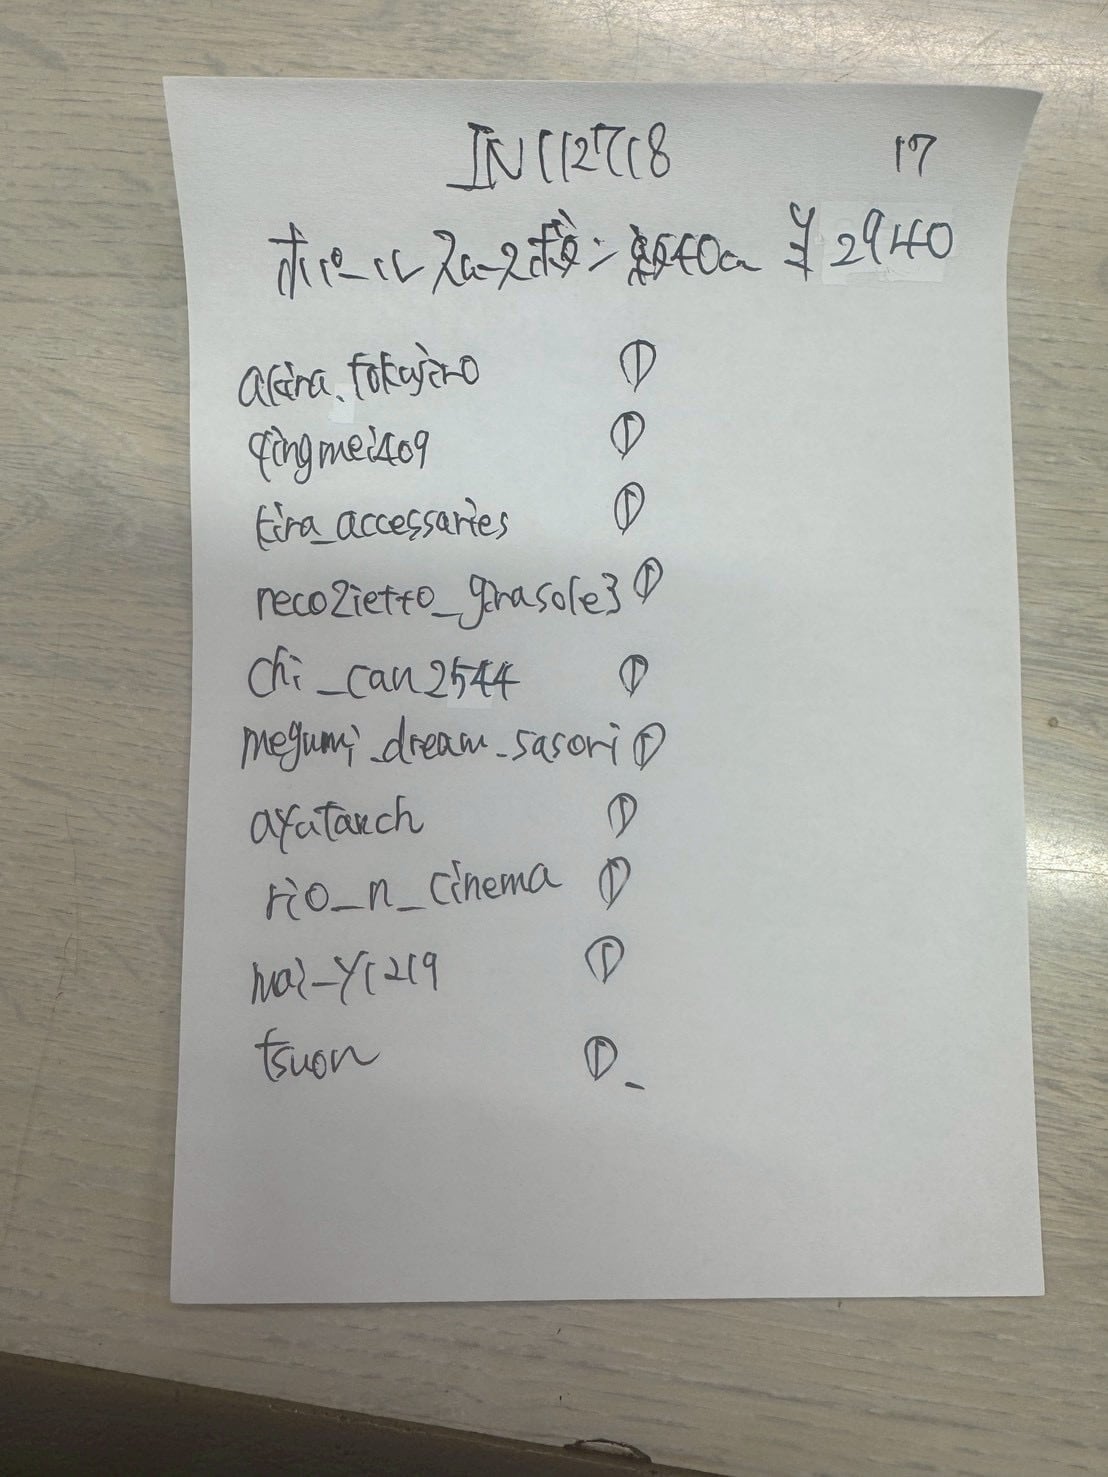 IN112718 17
¥2940
akira.tokujiro
qingmei409
kira_accessaries
necozietto_girasole3 ①
chi_can2544 ①
megumi_dream_sasori ①
ayutanch ①
rio_n_cinema ①
mai_y1219 ①
tsuon ①